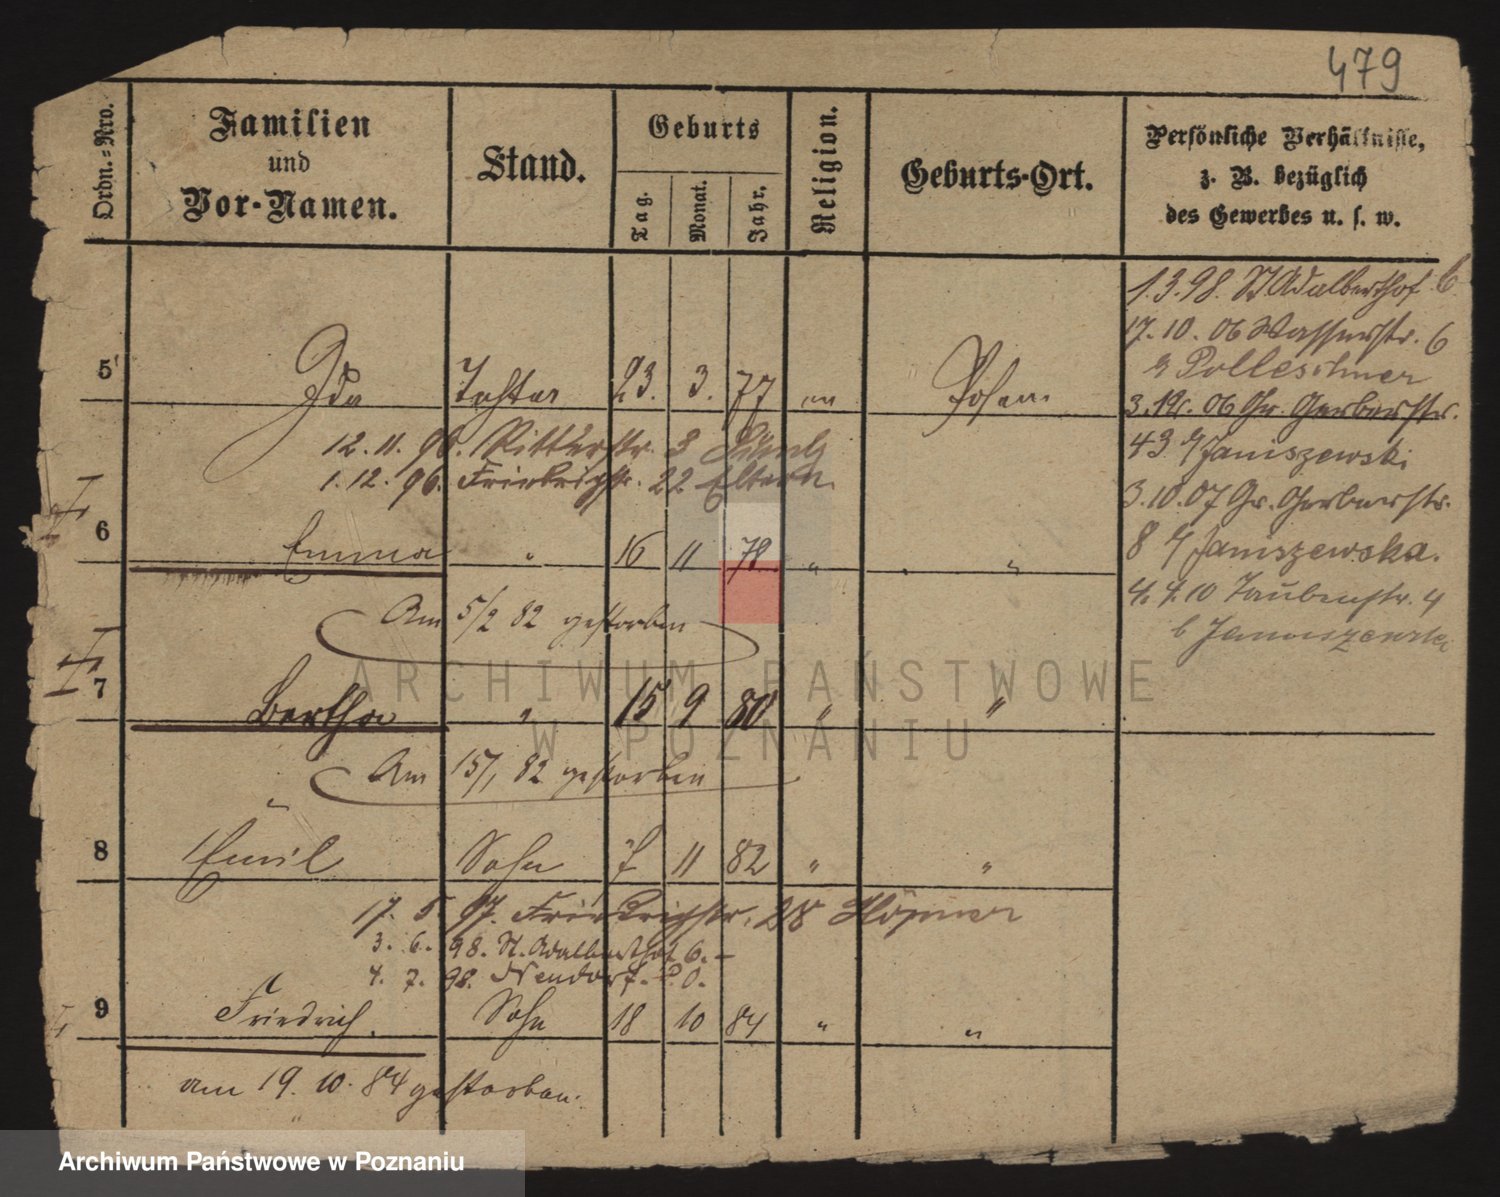 479
Ordn.-Nro.
Familien
und
Vor-Namen.
Stand.
Geburts
Tag.
Monat.
Jahr.
Religion.
Geburts-Ort.
Persönliche Verhältnisse,
z. B. bezüglich
des Gewerbes u. s. w.
1.3.98. St Adalberthof 6
17.10.06 Wasserstr. 6
3.12.06 Gr. Gerberstr.
43 Janiszewski
3.10.07 Gr. Gerberstr.
8 Janiszewska.
4.4.10 Taubenstr. 4
5 Ida Tochter 23. 3. 77 ev Posen
12.11.96. Ritterstr. 3
1.12.96. Friedrichstr. 22 Eltern
6 Emma " 16 11 78 " "
Am 5/2 82 gestorben
7 Bertha " 15 9 80 " "
Am 15/1 82 gestorben
8 Emil Sohn 7 11 82 " "
17. 5. 97. Friedrichstr. 28
3. 6. 98. St. Adalberthof 6. –
4. 7. 98.
9 Friedrich. Sohn 18 10 84 " "
am 19. 10. 84 gestorben.
ARCHIWUM PAŃSTWOWE
W POZNANIU
Archiwum Państwowe w Poznaniu